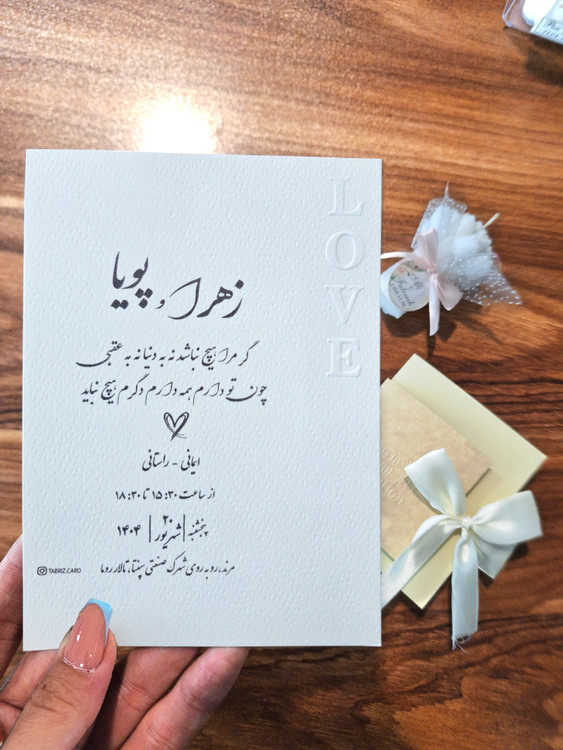 LOVE
زهرا و پویا
گر مرا هیچ نباشد نه به دنیا نه به عقبی
چون تو دارم همه دارم دگرم هیچ نباید
ایمانی - راستانی
از ساعت ۱۵:۳۰ تا ۱۸:۳۰
پنجشنبه | ۲۰ شهریور | ۱۴۰۴
مرند، روبه روی شهرک صنعتی سپنتا، تالار روما
TABRIZ.CARD